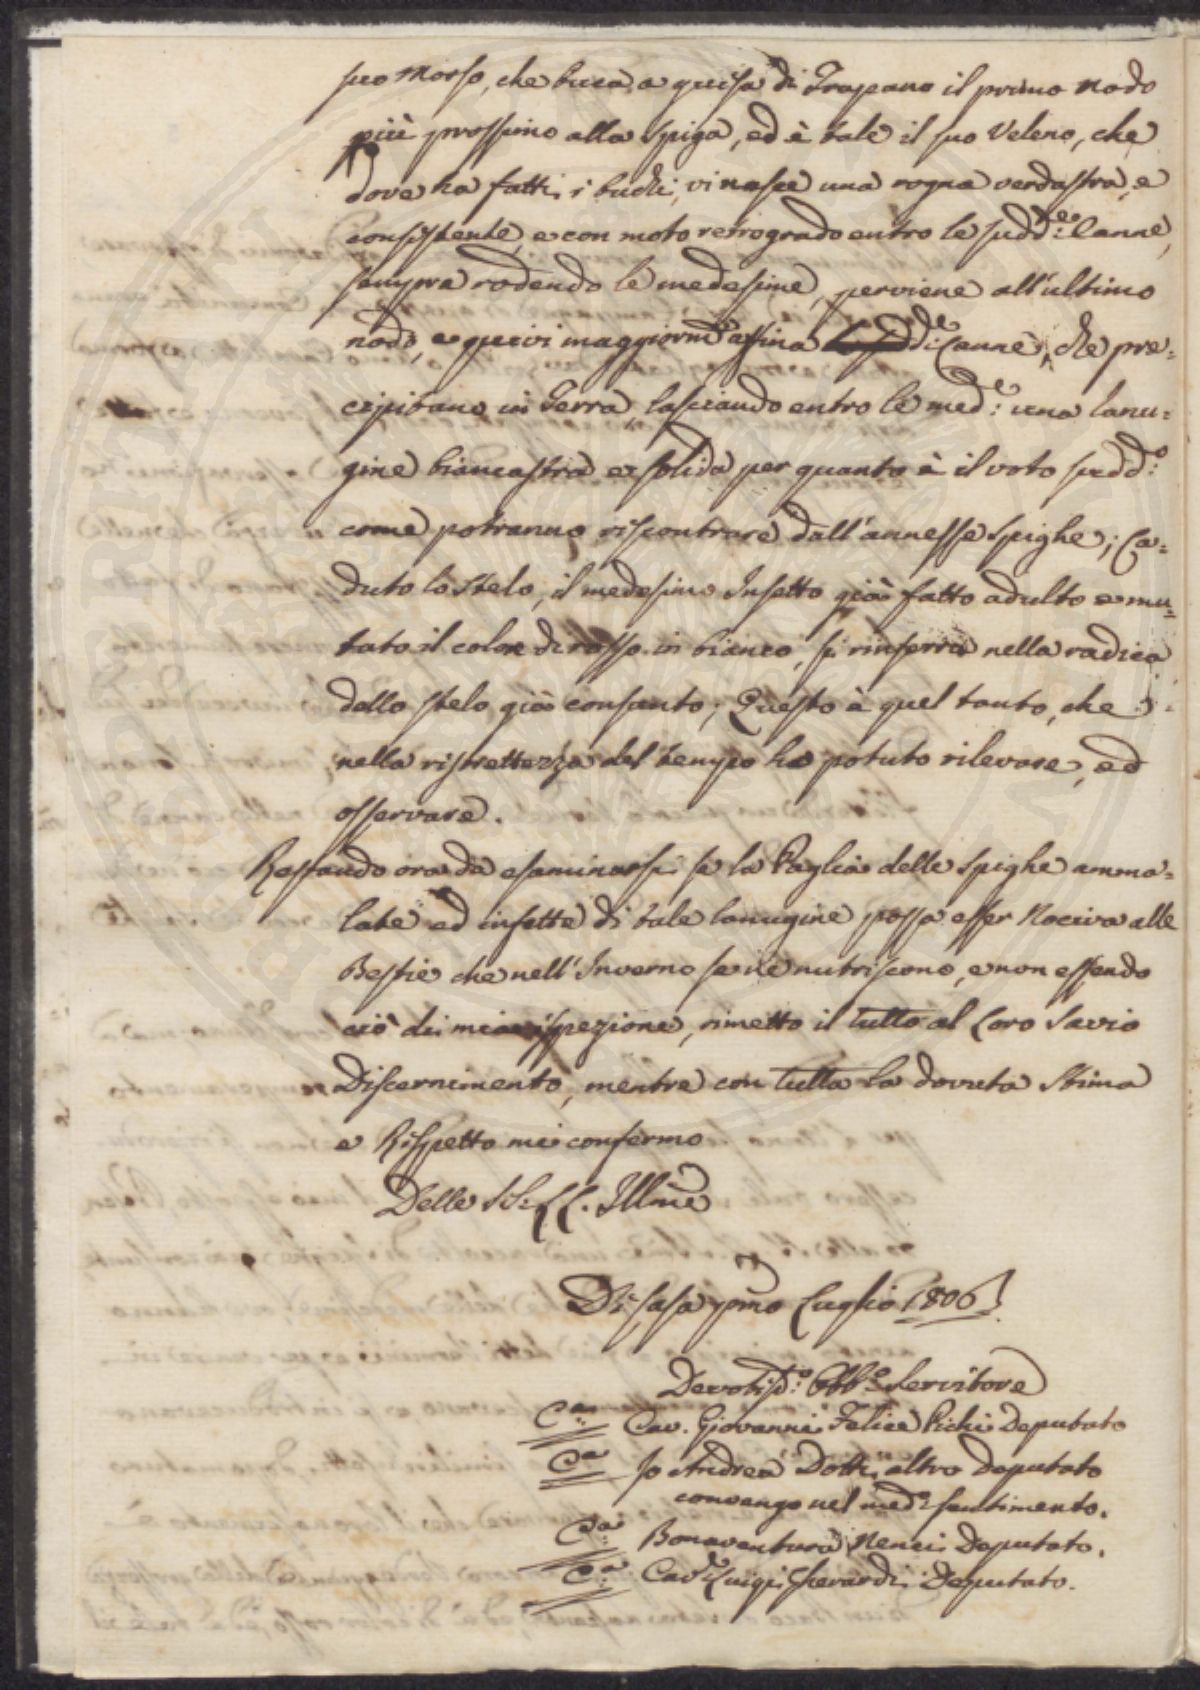 suo Morso, che buca a guisa di Trapano il primo nodo
più prossimo alla Spiga, ed è tale il suo Veleno, che
dove ha fatti i buchi, vi nasce una rogna verdastra, e
consistente, e con moto retrogrado entro le sudd:e Canne,
sempre rodendo le medesime, perviene all'ultimo
nodo, e quivi maggiorm:e d:e Canne, che pre=
cipitano in Terra, lasciando entro le med:e una lanu=
gine biancastra e solida per quanto è il voto sudd:o
come potranno riscontrare dall'annesse Spighe; Ca=
duto lo Stelo, il medesimo Insetto già fatto adulto e mu=
tato il colore di rosso in bianco, si rinserra nella radica
dello stelo già consunto; Questo è quel tanto, che
nella ristrettezza del tempo ho potuto rilevare, ed
osservare.
Restando ora da esaminarsi se la Paglia delle Spighe amma=
late ed infette di tale lanugine possa esser Nociva alle
Bestie che nell'Inverno se ne nutriscono, e non essendo
ciò di mia ispezione, rimetto il tutto al Loro Savio
Discernimento, mentre con tutta la dovuta Stima
e Rispetto mi confermo
Delle SS: LL. Illme
Di Casa pmo Luglio 1806
Devotis:o Obb:o Servitore
C:a Cav. Giovanni Felice Pichi Deputato
C:a Io Andrea Dotti altro Deputato
convengo nel med:o sentimento.
C:a Bonaventura Nenci Deputato.
C:a Cav:e Luigi Gherardi Deputato.